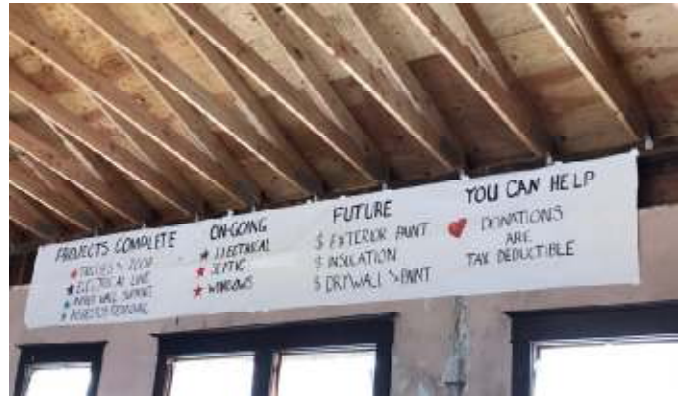 PROJECTS COMPLETE
TRUSSES & ROOF
ELECTRICAL LINE
INNER WALL SUPPORT
ASBESTOS REMOVAL
ON-GOING
ELECTRICAL
SEPTIC
WINDOWS
FUTURE
$ EXTERIOR PAINT
$ INSULATION
$ DRYWALL & PAINT
YOU CAN HELP
DONATIONS
ARE
TAX DEDUCTIBLE